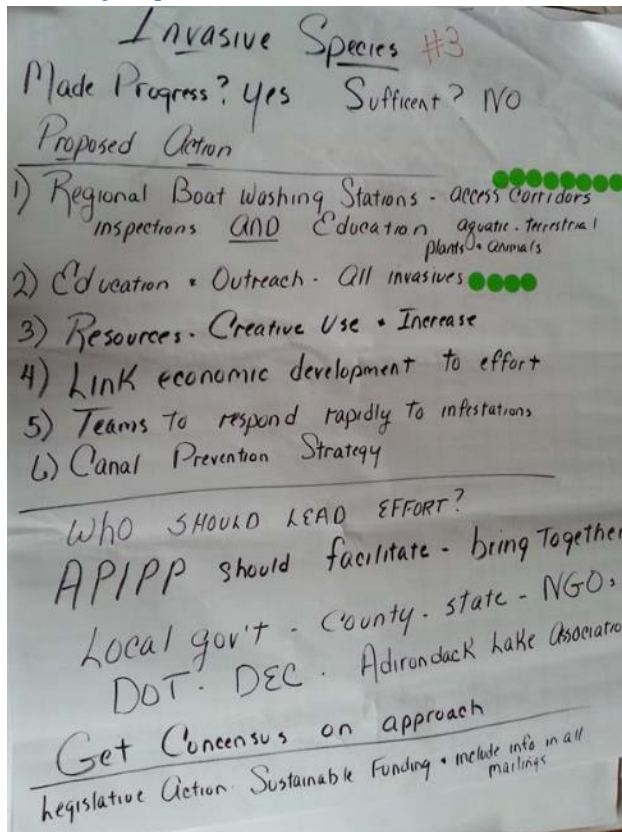 Invasive Species #3
Made Progress? Yes Sufficent? NO
Proposed Action
1) Regional Boat Washing Stations - access Corridors
inspections AND Education aquatic - terrestrial
plants & animals
2) Education & Outreach - All invasives
3) Resources - Creative Use & Increase
4) Link economic development to effort
5) Teams to respond rapidly to infestations
6) Canal Prevention Strategy
Who SHOULD LEAD EFFORT?
APIPP should facilitate - bring Together
Local gov't - County - state - NGOs
DOT - DEC - Adirondack Lake Associatio
Get Concensus on approach
Legislative Action Sustainable Funding • include info in all
mailings